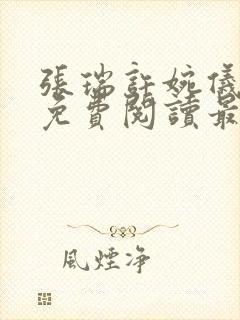 張瑞許婉儀
免費閱讀最
風煙净